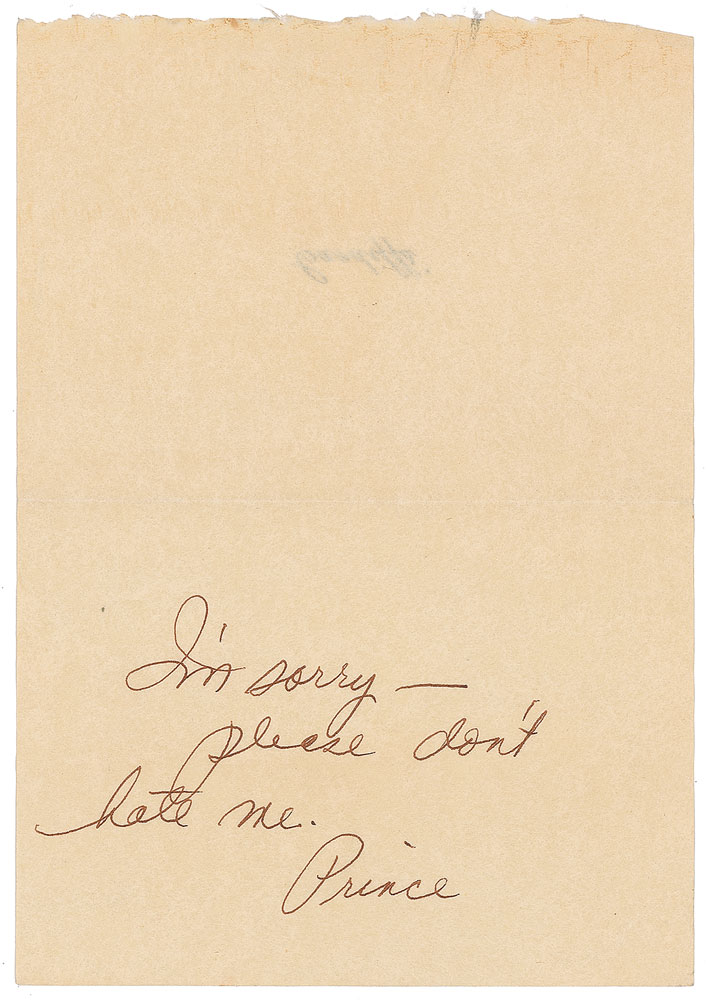 I'm sorry —
please don't
hate me.
Prince